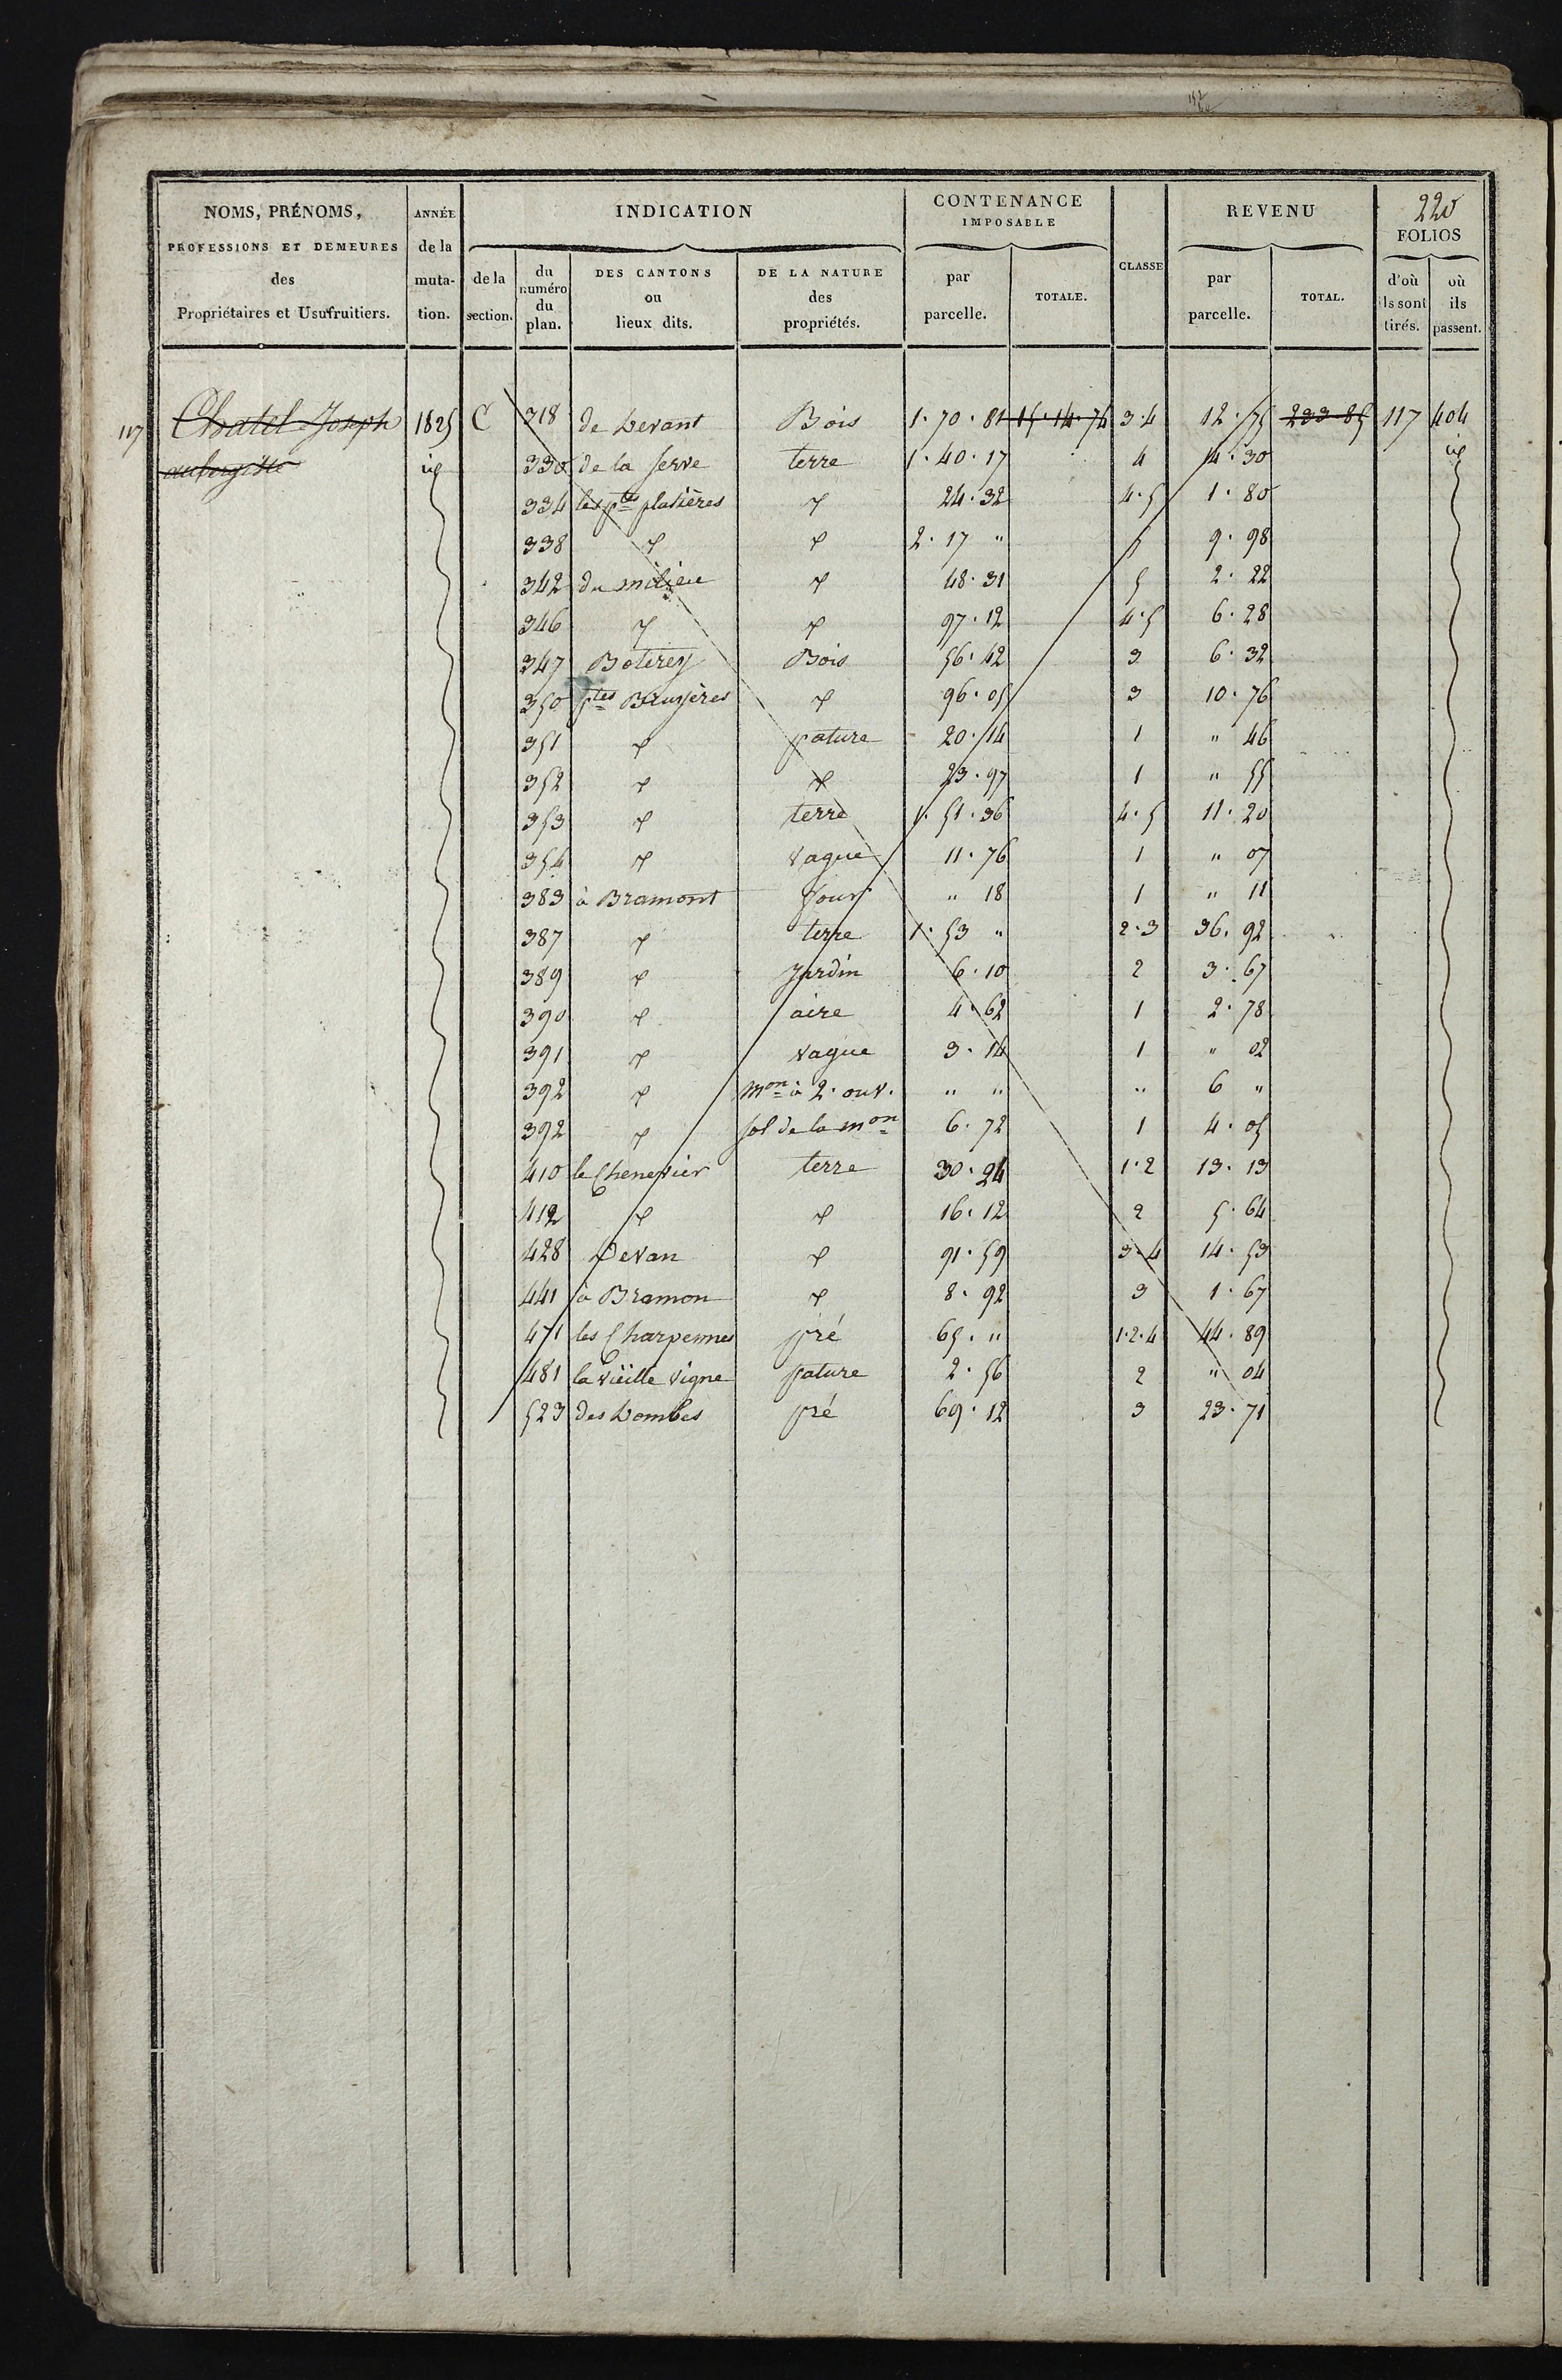 NOMS, PRÉNOMS, PROFESSIONS ET DEMEURES des Propriétaires et Usufruitiers.
ANNÉE de la muta-tion.
INDICATION
de la section.
du numéro du plan.
DES CANTONS ou lieux dits.
DE LA NATURE des propriétés.
CONTENANCE IMPOSABLE
par parcelle.
TOTALE.
CLASSE
REVENU
par parcelle.
TOTAL.
220
FOLIOS
d'où ils sont tirés.
où ils passent.
117 Chatel Joseph 1825 C 318 de Devant Bois 1. 70. 81 15. 14. 74 3.4 12. 75 233 85 117 404
aubergiste id 330 de la serve terre 1. 40. 17 4 14. 30 id
334 les ptes platières 24. 32 4.5 1. 80
338 2. 17 " 5 9. 98
342 du milieu 48. 31 5 2. 22
346 97. 12 4.5 6. 28
347 Boterey Bois 56. 42 3 6. 32
350 ptes Bruyères 96. 05 3 10. 76
351 pature 20. 14 1 " 46
352 23. 97 1 " 55
353 terre 1. 51. 36 4.5 11. 20
354 vague 11. 76 1 " 07
383 à Bramont four " 18 1 " 11
387 terre 1. 53 " 2.3 36. 92
389 Jardin 6. 10 2 3. 67
390 aire 4. 62 1 2. 78
391 vague 3. 14 1 " 02
392 mon à 2. ouv. " " " 6 "
392 sol de la mon 6. 72 1 4. 05
410 le Chenevier terre 30. 24 1.2 13. 13
412 16. 12 2 5. 64
428 Devan 91. 59 3.4 14. 53
441 à Bramon 8. 92 3 1. 67
471 les Charpennes pré 65. " 1.2.4 44. 89
481 la vieille vigne pature 2. 56 2 " 04
523 des Dombes pré 69. 12 3 23. 71